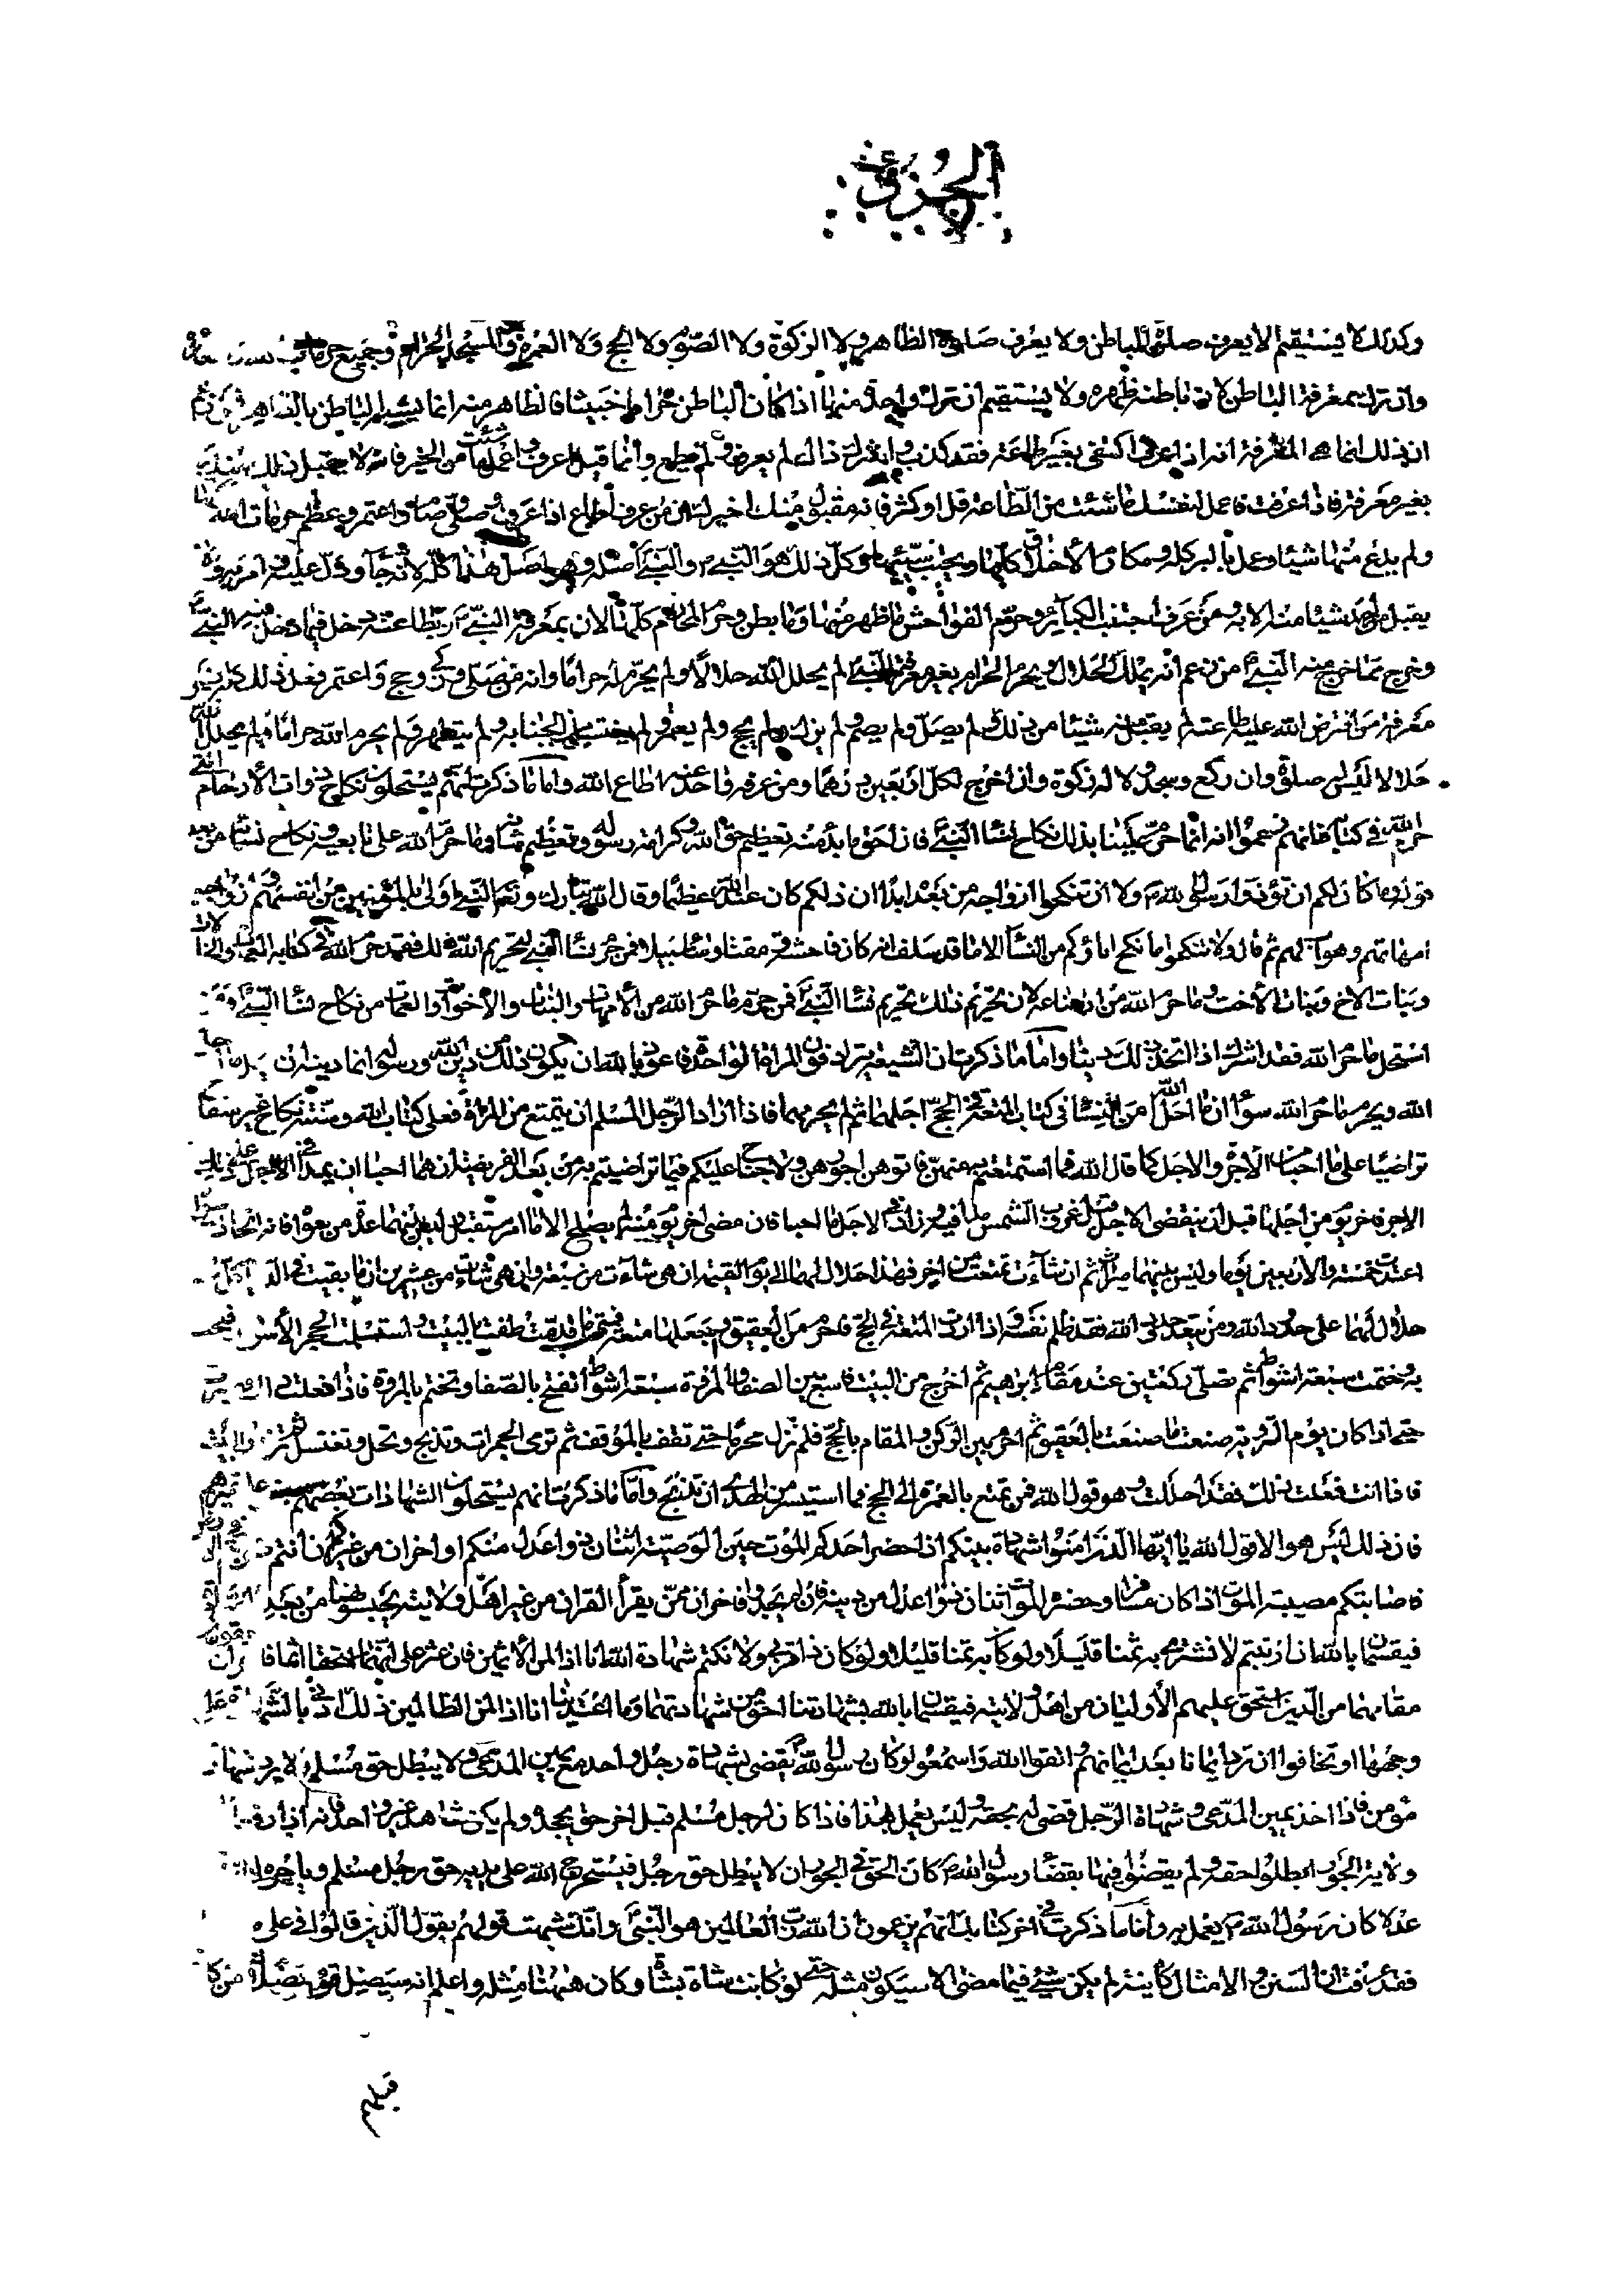 الجزء
وكذلك لا يستقيم الا يعرف صلوة الباطن ولا يعرف صلوة الظاهر ولا الزكوة ولا الصوم ولا الحج ولا العمرة ولا المسجد الحرام وجميع حرمات
وان ترك بمعرفة الباطن لان باطنه ظهره ولا يستقيم ان ترك واحدة منها اذا كان الباطن حراما خبيثا فالظاهر منه انما يشبه الباطن بالظاهر
ان ذلك انما هي المعرفة انه اذا عرف اكتفى بغير طاعته فقد كذب واشرك ذاك لم يعرف ولم يطع وانما قيل اعرف واعمل ما شئت من الخير فانه لا يقبل ذلك منك
بغير معرفة فاذا عرفت فاعمل لنفسك ما شئت من الطاعة قل او كثر فانه مقبول منك اخبرك ان من عرف اطاع اذا عرف وصلى وصام واعتمر وعظم حرمات الله
ولم يدع منها شيئا وعمل بالبر كله ومكارم الاخلاق كلها ويجتنب سيئها وكل ذلك هو النبي والنبي اصله وهو اصل هذا كله لانه جاء ودل عليه وامر به ولا
يقبل من احد شيئا منه الا به ومن عرف اجتنب الكبائر وحرم الفواحش ما ظهر منها وما بطن وحرم المحارم كلها لان بمعرفة النبي وبطاعته دخل فيما دخل فيه النبي
وخرج مما خرج منه النبي من زعم انه يملك الحلال ويحرم الحرام بغير معرفة النبي لم يحلل لله حلالا ولم يحرم له حراما وانه من صلى وزكى وحج واعتمر وفعل ذلك كله بغير
معرفة من افترض الله عليه طاعته لم يقبل منه شيئا من ذلك ولم يصل ولم يصم ولم يزك ولم يحج ولم يعتمر ولم يغتسل من الجنابة ولم يتطهر ولم يحرم الله حراما ولم يحلل لله
حلالا ليس له صلوة وان ركع وسجد ولا له زكوة وان اخرج لكل اربعين درهما ومن عرفه واخذ عنه اطاع الله واما ما ذكرت انهم يستحلون نكاح ذوات الارحام التي
حرم الله في كتابه فانهم زعموا انه انما حرم علينا بذلك نكاح نساء النبي فان احق ما بدء منه تعظيم حق الله وكرامة رسوله وتعظيم شانه وما حرم الله على تابعيه ونكاح نسائه من بعد
قوله وما كان لكم ان تؤذوا رسول الله ولا ان تنكحوا ازواجه من بعده ابدا ان ذلكم كان عند الله عظيما وقال الله تبارك وتعالى النبي اولى بالمؤمنين من انفسهم وازواجه
امهاتهم وهو اب لهم ثم قال ولا تنكحوا ما نكح اباؤكم من النساء الا ما قد سلف انه كان فاحشة ومقتا وساء سبيلا فمن حرم نساء النبي لتحريم الله ذلك فقد حرم الله في كتابه العمات والخالات
وبنات الاخ وبنات الاخت وما حرم الله من الرضاعة لان تحريم ذلك تحريم نساء النبي فمن حرم ما حرم الله من الامهات والبنات والاخوات والعمات من نكاح نساء النبي ومن
استحل ما حرم الله فقد اشرك اذا اتخذ ذلك دينا واما ما ذكرت ان الشيعة يترادفون المراة الواحدة فاعوذ بالله ان يكون ذلك من دين الله ورسوله انما دينه ان يحل ما احل
الله ويحرم ما حرم الله سواء ان ما احل الله من النساء في كتابه المتعة في الحج احلهما ثم لم يحرمهما فاذا اراد الرجل المسلم ان يتمتع من المراة فعلى كتاب الله وسنته نكاح غير سفاح
تراضيا على ما احبا من الاجر والاجل كما قال الله فما استمتعتم به منهن فاتوهن اجورهن ولا جناح عليكم فيما تراضيتم به من بعد الفريضة ان هما احبا ان يمدا في الاجل على ذلك
الاجر فاخر يوم من اجلها قبل ان ينقضي الاجل قبل غروب الشمس مدا فيه وزادا في الاجل ما احبا فان مضى اخر يوم منه لم يصلح الا بامر مستقبل وليس بينهما عدة من سواه فانه ان ارادت سواه
اعتدت خمسة والاربعين يوما وليس بينهما ميراث ثم ان شاءت تمتعت من اخر فهذا حلال لهما الى يوم القيمة ان هي شاءت من سبعة وان هي شاءت من عشرين ما بقيت في الدنيا كل
حلال لهما على حدود الله ومن يتعد حدود الله فقد ظلم نفسه واذا اردت المتعة في الحج فاحرم من العقيق واجعلها متعة فمتى ما قدمت طفت بالبيت واستلمت الحجر الاسود فتحت
به وختمت سبعة اشواط ثم تصلي ركعتين عند مقام ابراهيم ثم اخرج من البيت فاسع بين الصفا والمروة سبعة اشواط تفتح بالصفا وتختم بالمروة فاذا فعلت ذلك
حتى اذا كان يوم التروية صنعت ما صنعت بالعقيق ثم احرم بين الركن والمقام بالحج فلم تزل محرما حتى تقف بالموقف ثم ترمي الجمرات وتذبح وتحل وتغتسل ثم تزور البيت
فاذا انت فعلت ذلك فقد احللت وهو قول الله فمن تمتع بالعمرة الى الحج فما استيسر من الهدي ان تذبح واما ما ذكرت انهم يستحلون الشهادات بعضهم لبعض على غيرهم
فان ذلك ليس هو الا قول الله يا ايها الذين امنوا شهادة بينكم اذا حضر احدكم الموت حين الوصية اثنان ذوا عدل منكم او اخران من غيركم ان انتم
فاصابتكم مصيبة الموت اذا كان مسافرا وحضره الموت اثنان ذوا عدل من دينه فان لم يجدوا فاخران ممن يقرا القران من غير اهل ولايته تحبسونهما من بعد الصلوة
فيقسمان بالله ان ارتبتم لا نشتري به ثمنا قليلا ولو كان ذا قربى ولا نكتم شهادة الله انا اذا لمن الاثمين فان عثر على انهما استحقا اثما فاخران يقومان
مقامهما من الذين استحق عليهم الاوليان من اهل ولايته فيقسمان بالله لشهادتنا احق من شهادتهما وما اعتدينا انا اذا لمن الظالمين ذلك ادنى ان ياتوا بالشهادة على
وجهها او يخافوا ان ترد ايمان بعد ايمانهم واتقوا الله واسمعوا وكان رسول الله يقضي بشهادة رجل واحد مع يمين المدعي ولا يبطل حق مسلم ولا يرد شهادة
مؤمن فاذا اخذ يمين المدعي وشهادة الرجل قضى له بحقه وليس يعمل بهذا فاذا كان لرجل مسلم قبل اخر حق يجحده ولم يكن شاهد غير واحد فانه اذا رفعه
ولاية الجور ابطلوا حقه ولم يقضوا فيها بقضاء رسول الله كان الحق في الجور ان لا يبطل حق رجل فيستخرج الله على يديه حق رجل مسلم وياجره الله
عدلا كان رسول الله يعمل به واما ما ذكرت في اخر كتابك انهم يزعمون ان الله رب العالمين هو النبي وانك شبهت قولهم بقول الذين قالوا في علي
فقد عرفت ان السنن والامثال كائنة لم يكن شيء فيما مضى الا سيكون مثله حتى لو كانت شاة برشاء وكان ههنا مثله واعلم انه سيضل قوم بضلالة من كان
قبلهم